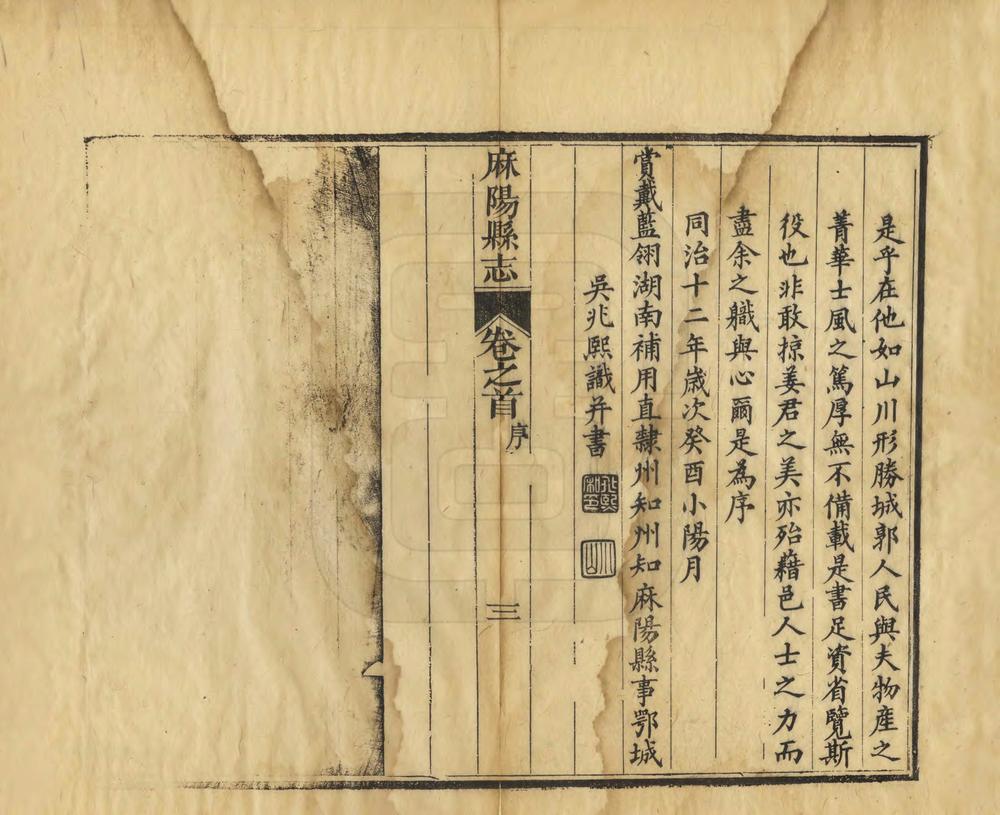 是乎在他如山川形勝城郭人民與夫物產之
菁華士風之篤厚無不備載是書足資省覽斯
役也非敢掠姜君之美亦殆藉邑人士之力而
盡余之職與心爾是為序
同治十二年歲次癸酉小陽月
賞戴藍翎湖南補用直隸州知州知麻陽縣事鄂城
吳兆熙識并書
麻陽縣志
卷之首
序
三